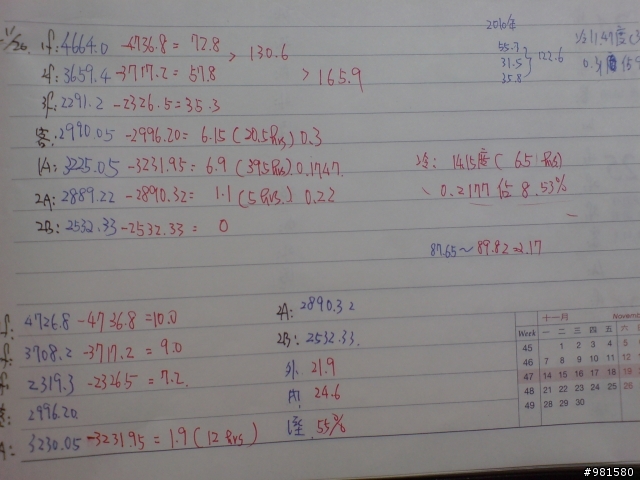 11/20. 1f: 4664.0 -4736.8 = 72.8
2f: 3659.4 -3717.2 = 57.8
> 130.6
3f: 2291.2 -2326.5 = 35.3
> 165.9
客: 2990.05 -2996.20 = 6.15 (20.5 hrs) 0.3
1A: 3225.05 -3231.95 = 6.9 (39.5 hrs) 0.1747
2A: 2889.22 -2890.32 = 1.1 (5 hrs.) 0.22
2B: 2532.33 -2532.33 = 0
2010年
55.7
31.5
35.8
} 122.6
冷: 14.15度 ( 65 hrs)
0.2177 佔 8.53%
87.65~89.82=2.17
4726.8 -4736.8 =10.0
3708.2 -3717.2 = 9.0
2319.3 -2326.5 = 7.2
2996.20
3230.05 -3231.95 = 1.9 (12 hrs)
2A: 2890.32
2B: 2532.33
外. 21.9
內. 24.6
溼. 55%
十一月 Novem
Week 一 二 三 四 五 六
45 1 2 3 4 5
46 7 8 9 10 11 12
47 14 15 16 17 18 19
48 21 22 23 24 25 26
49 28 29 30
#981580